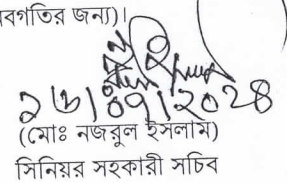 বগতির জন্য)।
২৬/০৭/২০২৪
(মোঃ নজরুল ইসলাম)
সিনিয়র সহকারী সচিব